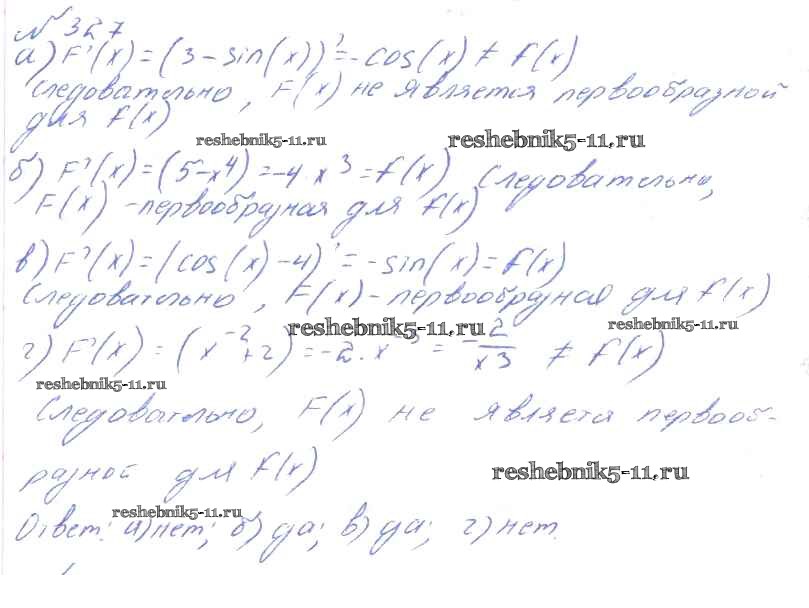 № 327
а) F'(x) = (3 - sin(x))' = -cos(x) ≠ f(x)
Следовательно, F(x) не является первообразной
для f(x)
reshebnik5-11.ru reshebnik5-11.ru
б) F'(x) = (5-x⁴)' = -4·x³ = f(x) Следовательно,
F(x) - первообразная для f(x)
в) F'(x) = (cos(x) - 4)' = -sin(x) = f(x)
Следовательно, F(x) - первообразная для f(x)
reshebnik5-11.ru reshebnik5-11.ru
г) F'(x) = (x⁻²+2)' = -2·x⁻³ = -2/x3 ≠ f(x)
reshebnik5-11.ru
Следовательно, F(x) не является первооб-
разной для f(x)
reshebnik5-11.ru
reshebnik5-11.ru
Ответ: а) нет; б) да; в) да; г) нет.